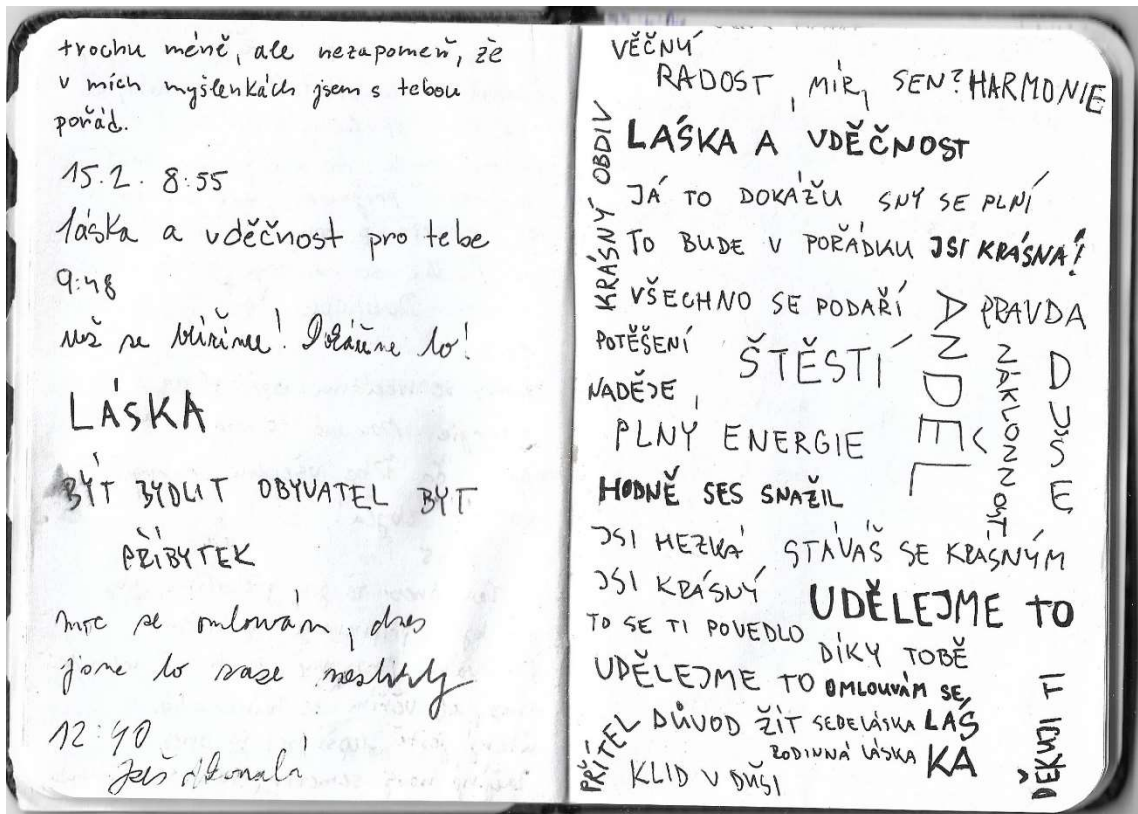 trochu méně, ale nezapomeň, že
v mích myšlenkách jsem s tebou
pořád.
15.2. 8:55
láska a vděčnost pro tebe
9:48
už se blížíme! Dokážeme to!
LÁSKA
BÝT BYDLIT OBYVATEL BÝT
PŘÍBYTEK
moc se omlouvám, dnes
jsme to zase nestihly
12:40
VĚČNÝ
RADOST, MÍR, SEN? HARMONIE
KRÁSNÝ OBDIV
LÁSKA A VDĚČNOST
JÁ TO DOKÁŽU SNY SE PLNÍ
TO BUDE V POŘÁDKU JSI KRÁSNÁ!
VŠECHNO SE PODAŘÍ
ANDĚL
PRAVDA
POTĚŠENÍ
ŠTĚSTÍ
NÁKLONNOST
DUŠE
NADĚJE,
PLNÝ ENERGIE
HODNĚ SES SNAŽIL
JSI HEZKÁ STÁVÁŠ SE KRÁSNÝM
JSI KRÁSNÝ
UDĚLEJME TO
TO SE TI POVEDLO
DÍKY TOBĚ
UDĚLEJME TO OMLOUVÁM SE,
DĚKUJI TI
PŘÍTEL
DŮVOD ŽÍT SEBELÁSKA LÁS
RODINNÁ LÁSKA KA
KLID V DUŠI